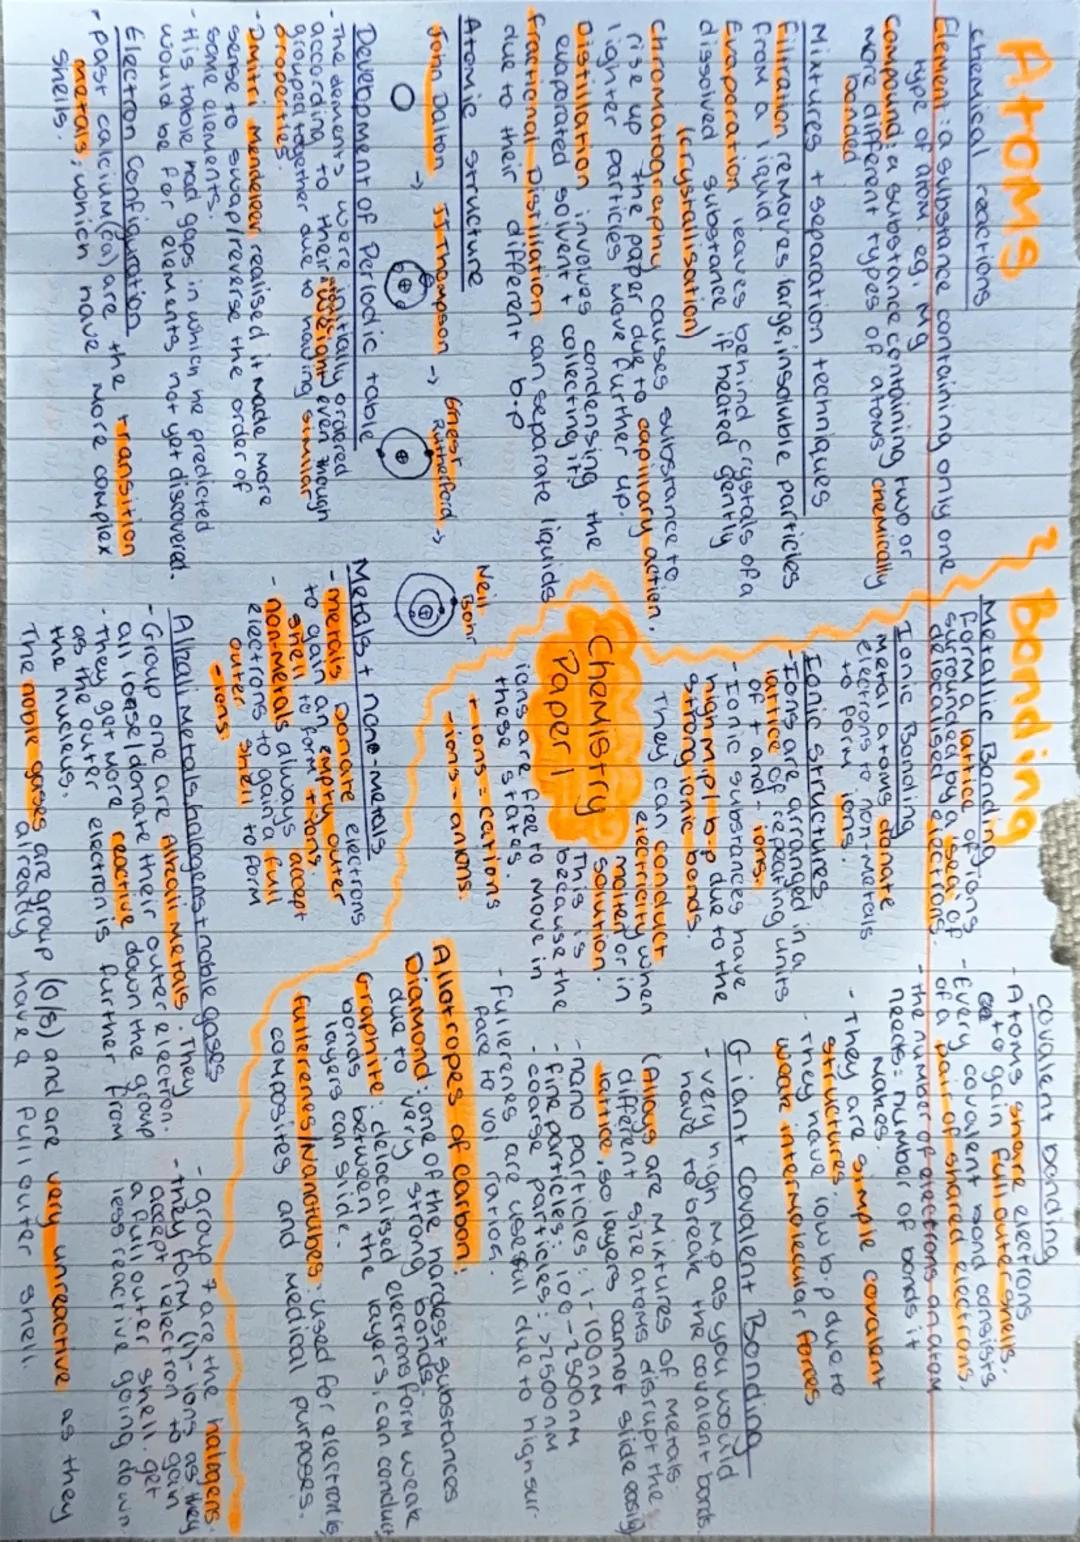 Atoms
chemical reactions
Element: a substance containing only one
type of atom. eg, Mg
Compound: a substance containing two or
more different types of atoms chemically
bonded
Mixtures + separation techniques
Filtration removes large, insoluble particles
from a liquid.
Evaporation leaves behind crystals of a
dissolved substance if heated gently
(crystallisation)
Chromatography causes substance to
rise up the paper due to capillary action,
lighter particles move further up.
Distillation involves condensing the
evaporated solvent + collecting it
fractional Distillation can separate liquids
due to their different b.p
Atomic structure
John Dalton → JJ Thompson → Ernest Rutherford → Neil Bohr
Development of Periodic table
- The elements were initially ordered
according to their weight even though
grouped together due to having similar
properties.
- Dmitri mendeleev realised it made more
sense to swap/reverse the order of
some elements.
- His table had gaps in which he predicted
would be for elements not yet discovered.
Electron Configuration
- past calcium (Ca) are the transition
metals, which have more complex
shells.
Bonding
Metallic Bonding
form a lattice of ions
surrounded by a sea of
delocalised electrons.
Ionic Bonding
metal atoms donate
electrons to non-metals
to form ions.
Ionic structures
- Ions are arranged in a
lattice of repeating units
of + and - ions.
- Ionic substances have
high mp/b.p due to the
strong ionic bonds.
They can conduct
electricity when
molten or in
solution.
This is
because the
ions are free to move in
these states.
+ ions = cations
- ions = anions.
Chemistry
Paper 1
Metals + non-metals
- metals donate electrons
to gain an empty outer
shell to form + ions.
- non-metals always accept
electrons to gain a full
outer shell to form
- ions.
Alkali Metals, halogens + noble gases
- Group one are alkali metals. They
all lose/donate their outer electron.
- they get more reactive down the group
as the outer electron is further from
the nucleus.
The noble gases are group (0/8) and are very unreactive as they
already have a full outer shell.
covalent bonding
- Atoms share electrons
to gain full outer shells.
- Every covalent bond consists
of a pair of shared electrons.
- the number of electrons an atom
needs = number of bonds it
makes.
- They are simple covalent
structures.
- They have low b.p due to
weak intermolecular forces
Giant Covalent Bonding
- very high mp as you would
have to break the covalent bonds.
(Alloys are mixtures of metals:
different size atoms disrupt the
lattice, so layers cannot slide easily
- nano particles: 1-100nm
- fine particles: 100-2500nm
- coarse particles: >2500nm
- Fullerenes are useful due to high sur-
face to vol ratios.
Allotropes of carbon:
Diamond: one of the hardest substances
due to very strong bonds.
Graphite: delocalised electrons form weak
bonds between the layers, can conduct,
layers can slide.
fullerenes/Nanotubes: used for electronics,
composites and medical purposes.
- group 7 are the halogens.
- they form (1)- ions as they
accept 1 electron to gain
a full outer shell. get
less reactive going down.